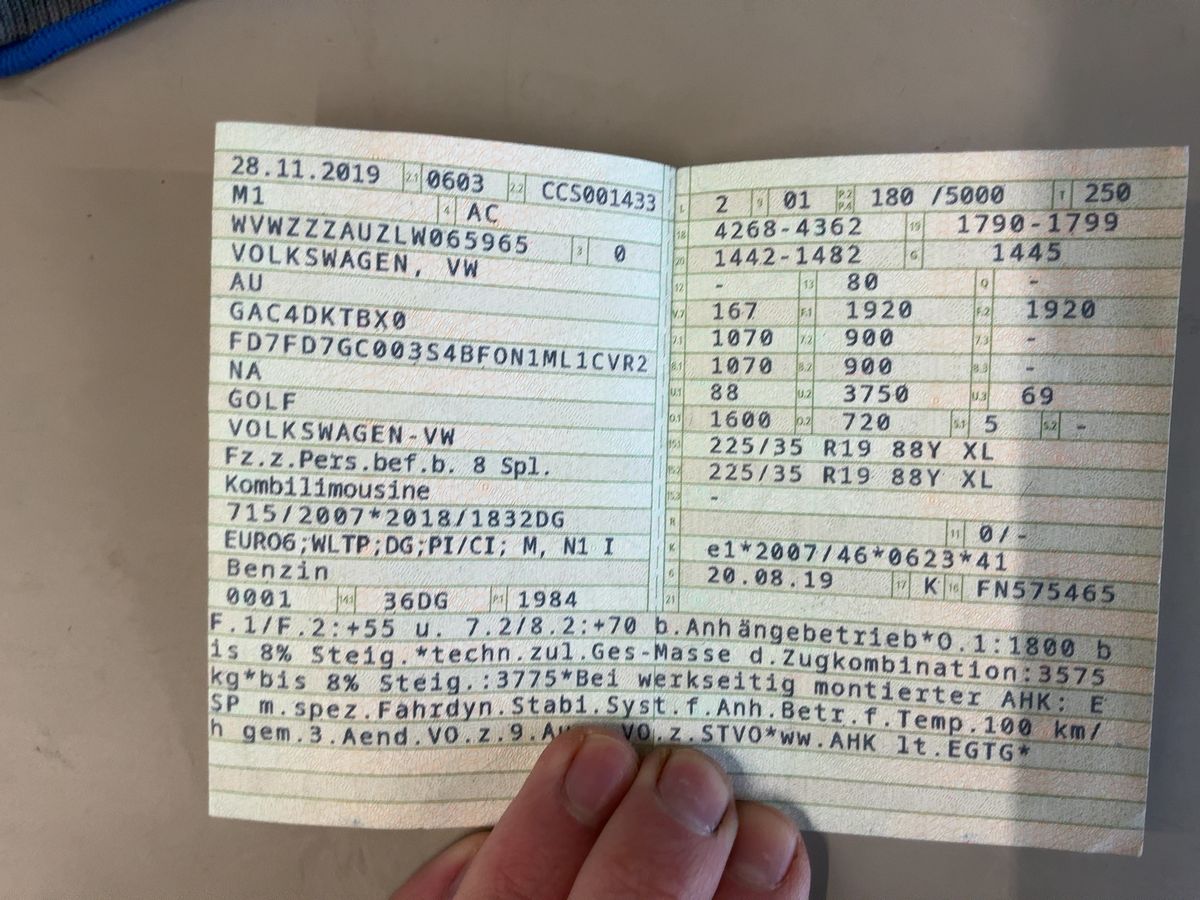 28.11.2019 2.1 0603 2.2 CCS001433
M1 4 AC
WVWZZZAUZLW065965 3 0
VOLKSWAGEN, VW
AU
GAC4DKTBX0
FD7FD7GC003S4BFON1ML1CVR2
NA
GOLF
VOLKSWAGEN-VW
Fz.z.Pers.bef.b. 8 Spl.
Kombilimousine
715/2007*2018/1832DG
EURO6;WLTP;DG;PI/CI; M, N1 I
Benzin
0001 14.1 36DG P.1 1984
L 2 9 01 P.2 P.4 180 /5000 T 250
18 4268-4362 19 1790-1799
20 1442-1482 G 1445
12 - 13 80 Q -
V.7 167 F.1 1920 F.2 1920
7.1 1070 7.2 900 7.3 -
8.1 1070 8.2 900 8.3 -
U.1 88 U.2 3750 U.3 69
O.1 1600 O.2 720 S.1 5 S.2 -
15.1 225/35 R19 88Y XL
15.2 225/35 R19 88Y XL
15.3 -
R 11 0/-
K e1*2007/46*0623*41
6 20.08.19 17 K 16 FN575465
21
F.1/F.2:+55 u. 7.2/8.2:+70 b.Anhängebetrieb*O.1:1800 b
is 8% Steig.*techn.zul.Ges-Masse d.Zugkombination:3575
kg*bis 8% Steig.:3775*Bei werkseitig montierter AHK: E
SP m.spez.Fahrdyn.Stabi.Syst.f.Anh.Betr.f.Temp.100 km/
h gem.3.Aend.VO.z.9. VO.z.STVO*ww.AHK lt.EGTG*